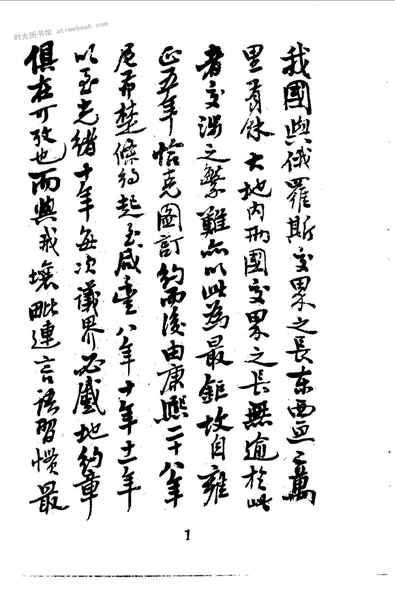 时光图书馆 atimebook.com
我國與俄羅斯交界之長东西亘二萬
里有餘大地內兩國交界之長無逾於此
者交涉之繁難亦以此為最鉅故自雍
正五年恰克圖訂約而後由康熙二十八年
尼布楚條約起至咸豐八年十年十一年
以至光緒十年每次議界必蹙地約章
俱在可攷也而與我壤毗連言語習慣最
1